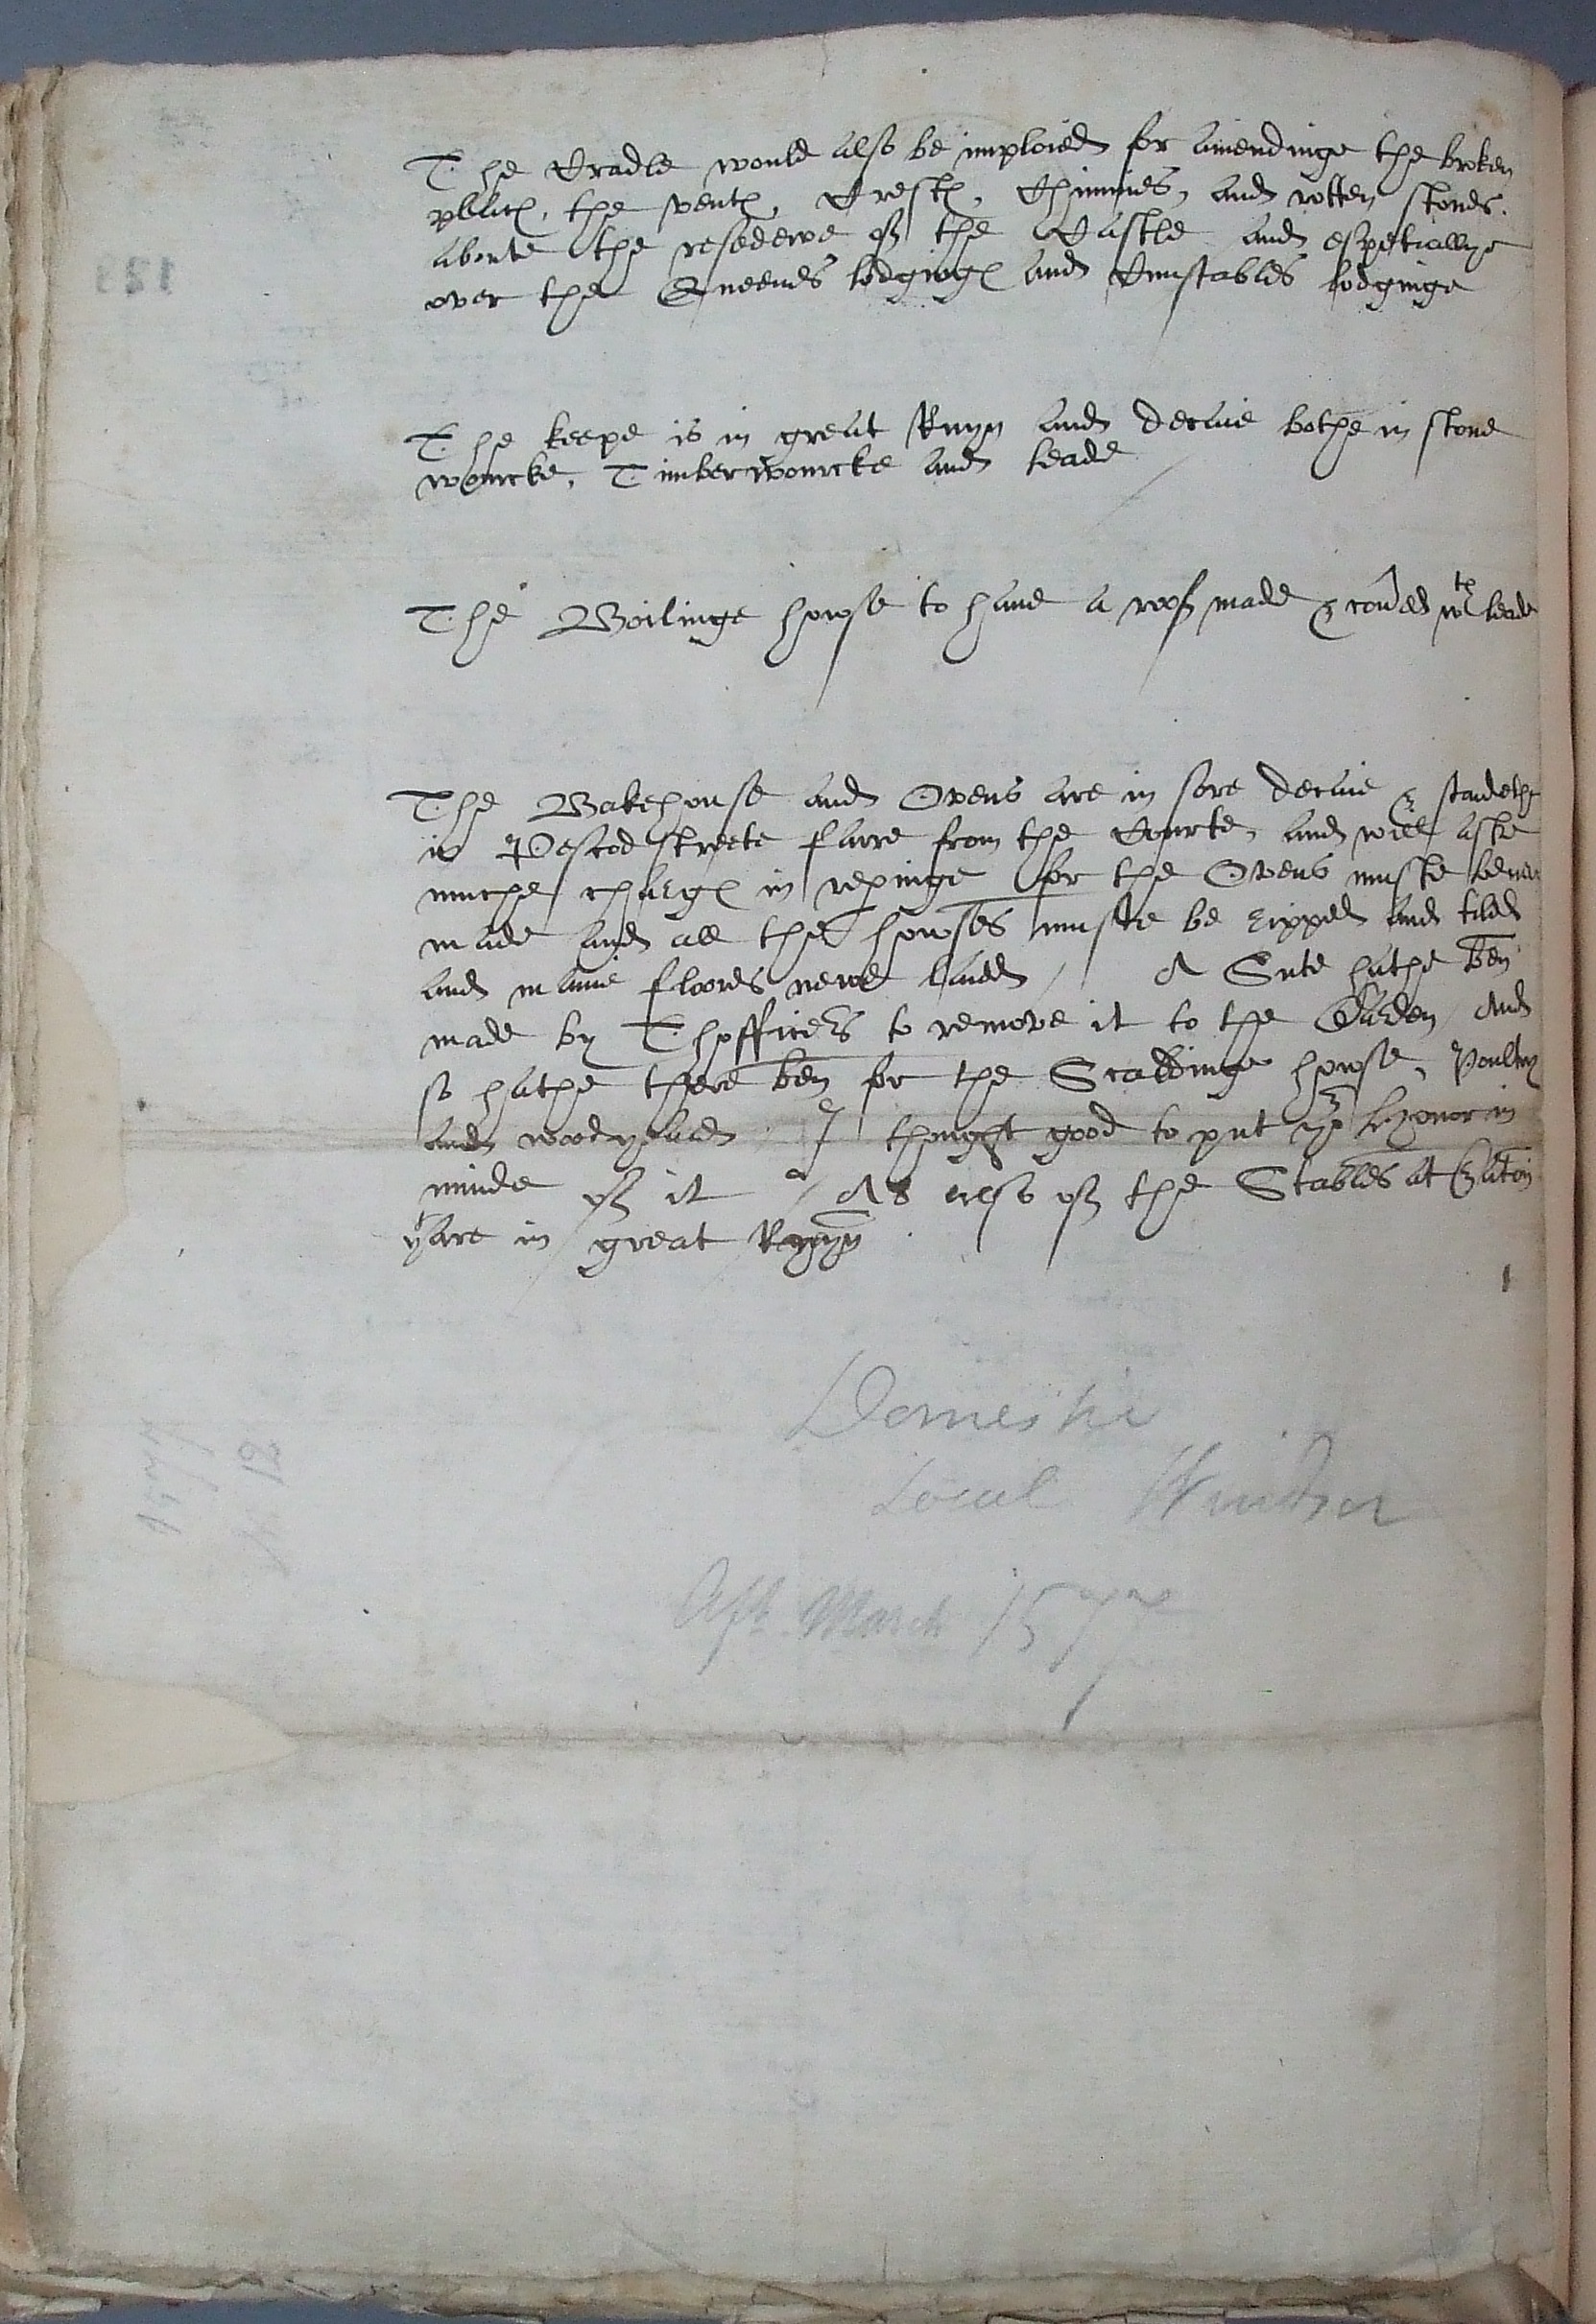 The Cradle would also be imploied for amendinge the broken
places, the ventes, Crestes, Chimnies, and rotten stones.
aboute the resedewe of the Castle and espetiallye
over the Queenes lodginges and Cunstables lodginge
The keepe is in great Ruyn and decaie bothe in stone
wourcke, Timberwourcke and leade
The Boilinge howse to haue a roof made & coued wth leade
The Bakehouse and Ovens are in sore decaie & standethe
in Pescod streete farre from the Courte, and will aske
muche charges in repinge for the Ovens muste be newe
made and all the howses muste be ripped and tiled
and manie floores newe laied / A Sute hathe ben
made by Thofficers to remove it to the Garden And
so hathe there ben for the Scaldinge howse, Poultry
and woodyeard / I thought good to put yor honor in
minde of it / As also of the Stables at Eaton
yt are in great Ruyn
Domestic
Local Windsor
Aft. March 1577
1577
123